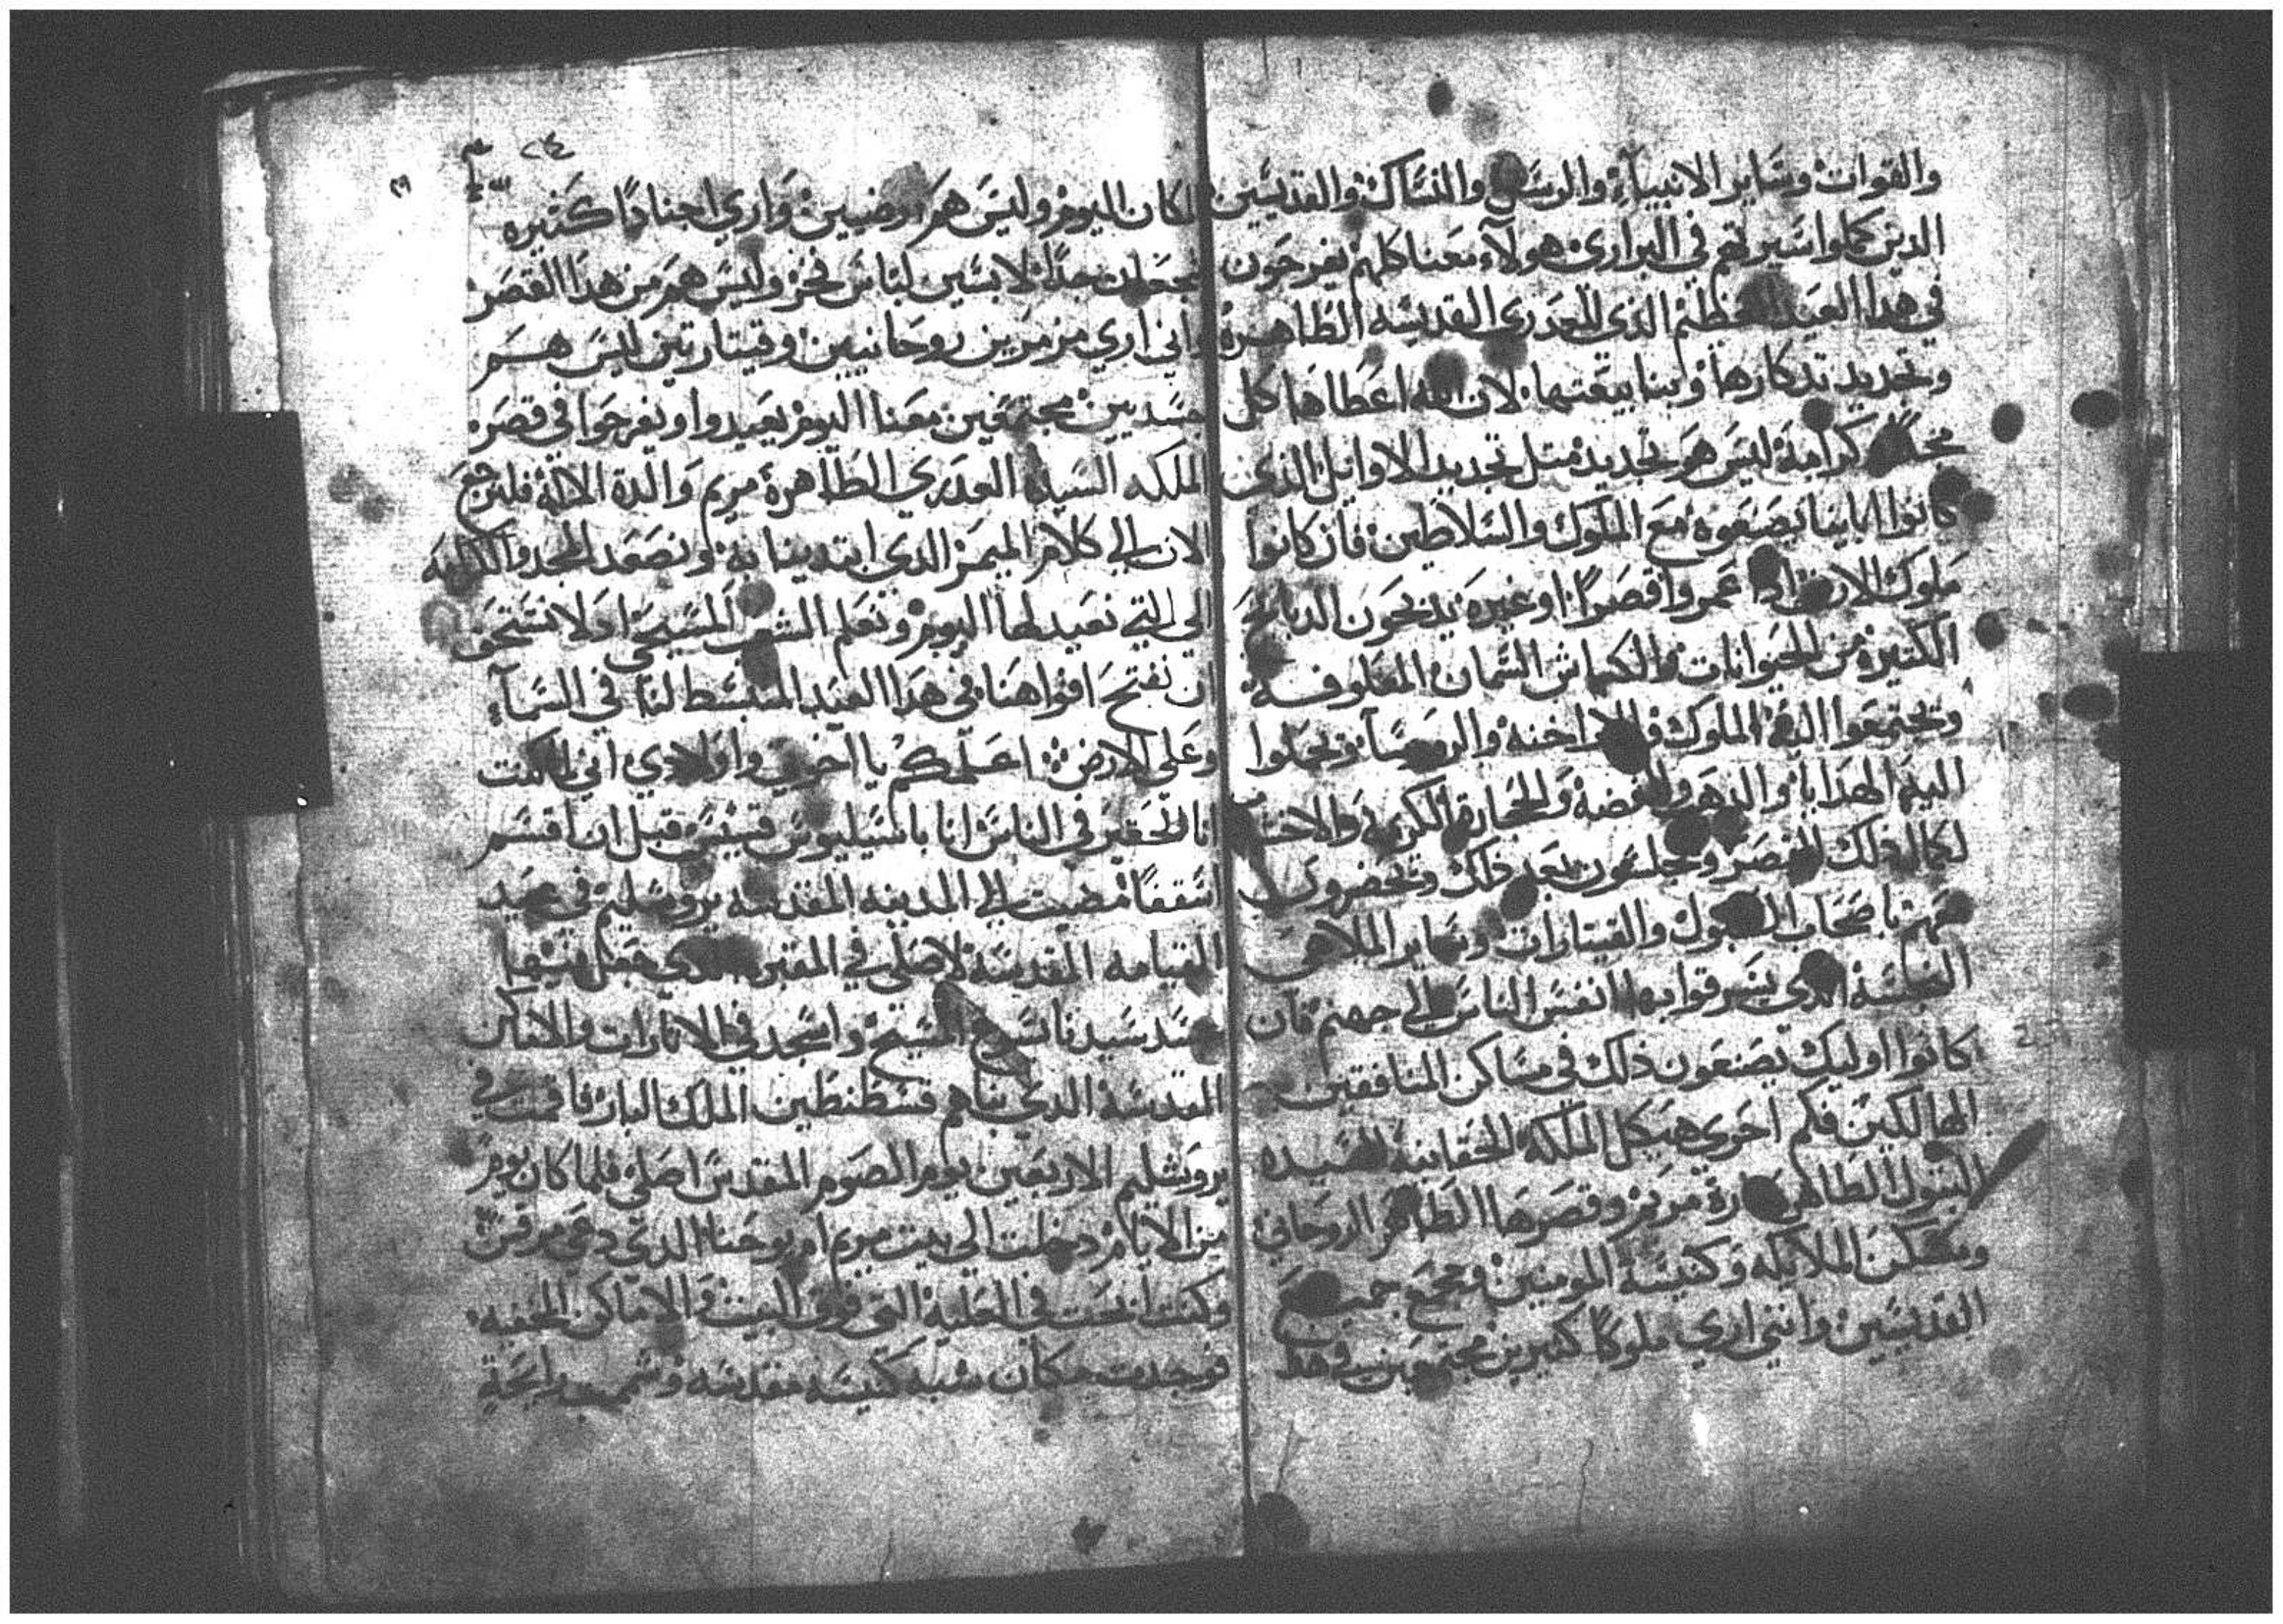 والقوات وساير الانبياء والرسل والنساك والقديسين
الدين كملوا سيرتهم في البراري هولاء معنا كلهم يفرحون
في هدا العيد العظيم الذي للعدري القديسه الطاهرة
وتجديد تدكارها وبنا بيعتها لان الله اعطاها كل
كرامة ليس هو تجديد متل تجديد الاوايل الذي
كانوا ابابنا يصنعوه مع الملوك والسلاطين فان كانوا
ملوك الارض ادا عمروا قصرا او غيره يدبحون الدبايح
الكتيرة من الحيوانات والكباش السمان المعلوفة
وتجتمعوا اليه الملوك والاراخنه والروسا وتحملوا
اليهم الهدايا والدهب والفضة والحجارة الكريمة
لكمال ذلك القصر وجلسون بعد ذلك وتحضرون
باصحاب الطبول والقيتارات وساير الملاهي
النجسة الدي يسرقوا بها انفس الناس الي جهنم فان
كانوا اوليك يصنعون ذلك في مساكن المنافقين
الهالكين فكم احري هيكل الملكة الحقانية السيده
البتول الطاهرة مريم وقصرها الطاهر الروحاني
ومسكن الملايكه وكنيسة المومنين ومجمع جميع
القديسين وانني اري ملوكا كتيرين مجتمعين في هدا
٢٤
المكان اليوم وليس هم ارضيين واري اجنادا كثيره
جدا لابسين لباس فخر وليس هم من هدا القصر
واني اري مزمرين روحانيين وقيتارتين ليس هم
جسديين مجتمعين معنا اليوم يعيدوا ويفرحوا في قصر
الملكه السيدة العدري الطاهرة مريم والدة الالة فلنرجع
الان الي كلام الميمر الدي ابتدينا به ونصعد المجد والكرامه
الي التي نعيد لها اليوم ونعلم الشعب المسيحي ولا نستحق
ان نفتح افواهنا في هدا العيد المنبسط لنا في السماء
وعلي الارض اعلمكم يا اخوتي واولادي اني لما كنت
انا الحقير في الناس انا باسيليوس قسيس قبل ان اقسم
اسقفا مضيت الي المدينه المقدسة يروشليم في عيد
القيامه المقدسة لاصلي في المقبره الدي جعل فيها
جسد سيدنا يسوع المسيح واسجد في الاتارات والاماكن
المقدسة الدي بناهم قسطنطين الملك البار فاقمت في
يروشليم الاربعين يوم الصوم المقدس اصلي فلما كان يوم
من الايام دخلت الي بيت مريم ام يوحنا الدي دعي مرقس
وكنت في العلية التي فوق البيت والاماكن الخفيه
فوجدت مكان شبه كنيسه مقدسه وشممت رايحة